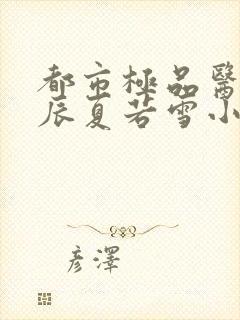 都市極品醫
辰夏若雪小
彦澤